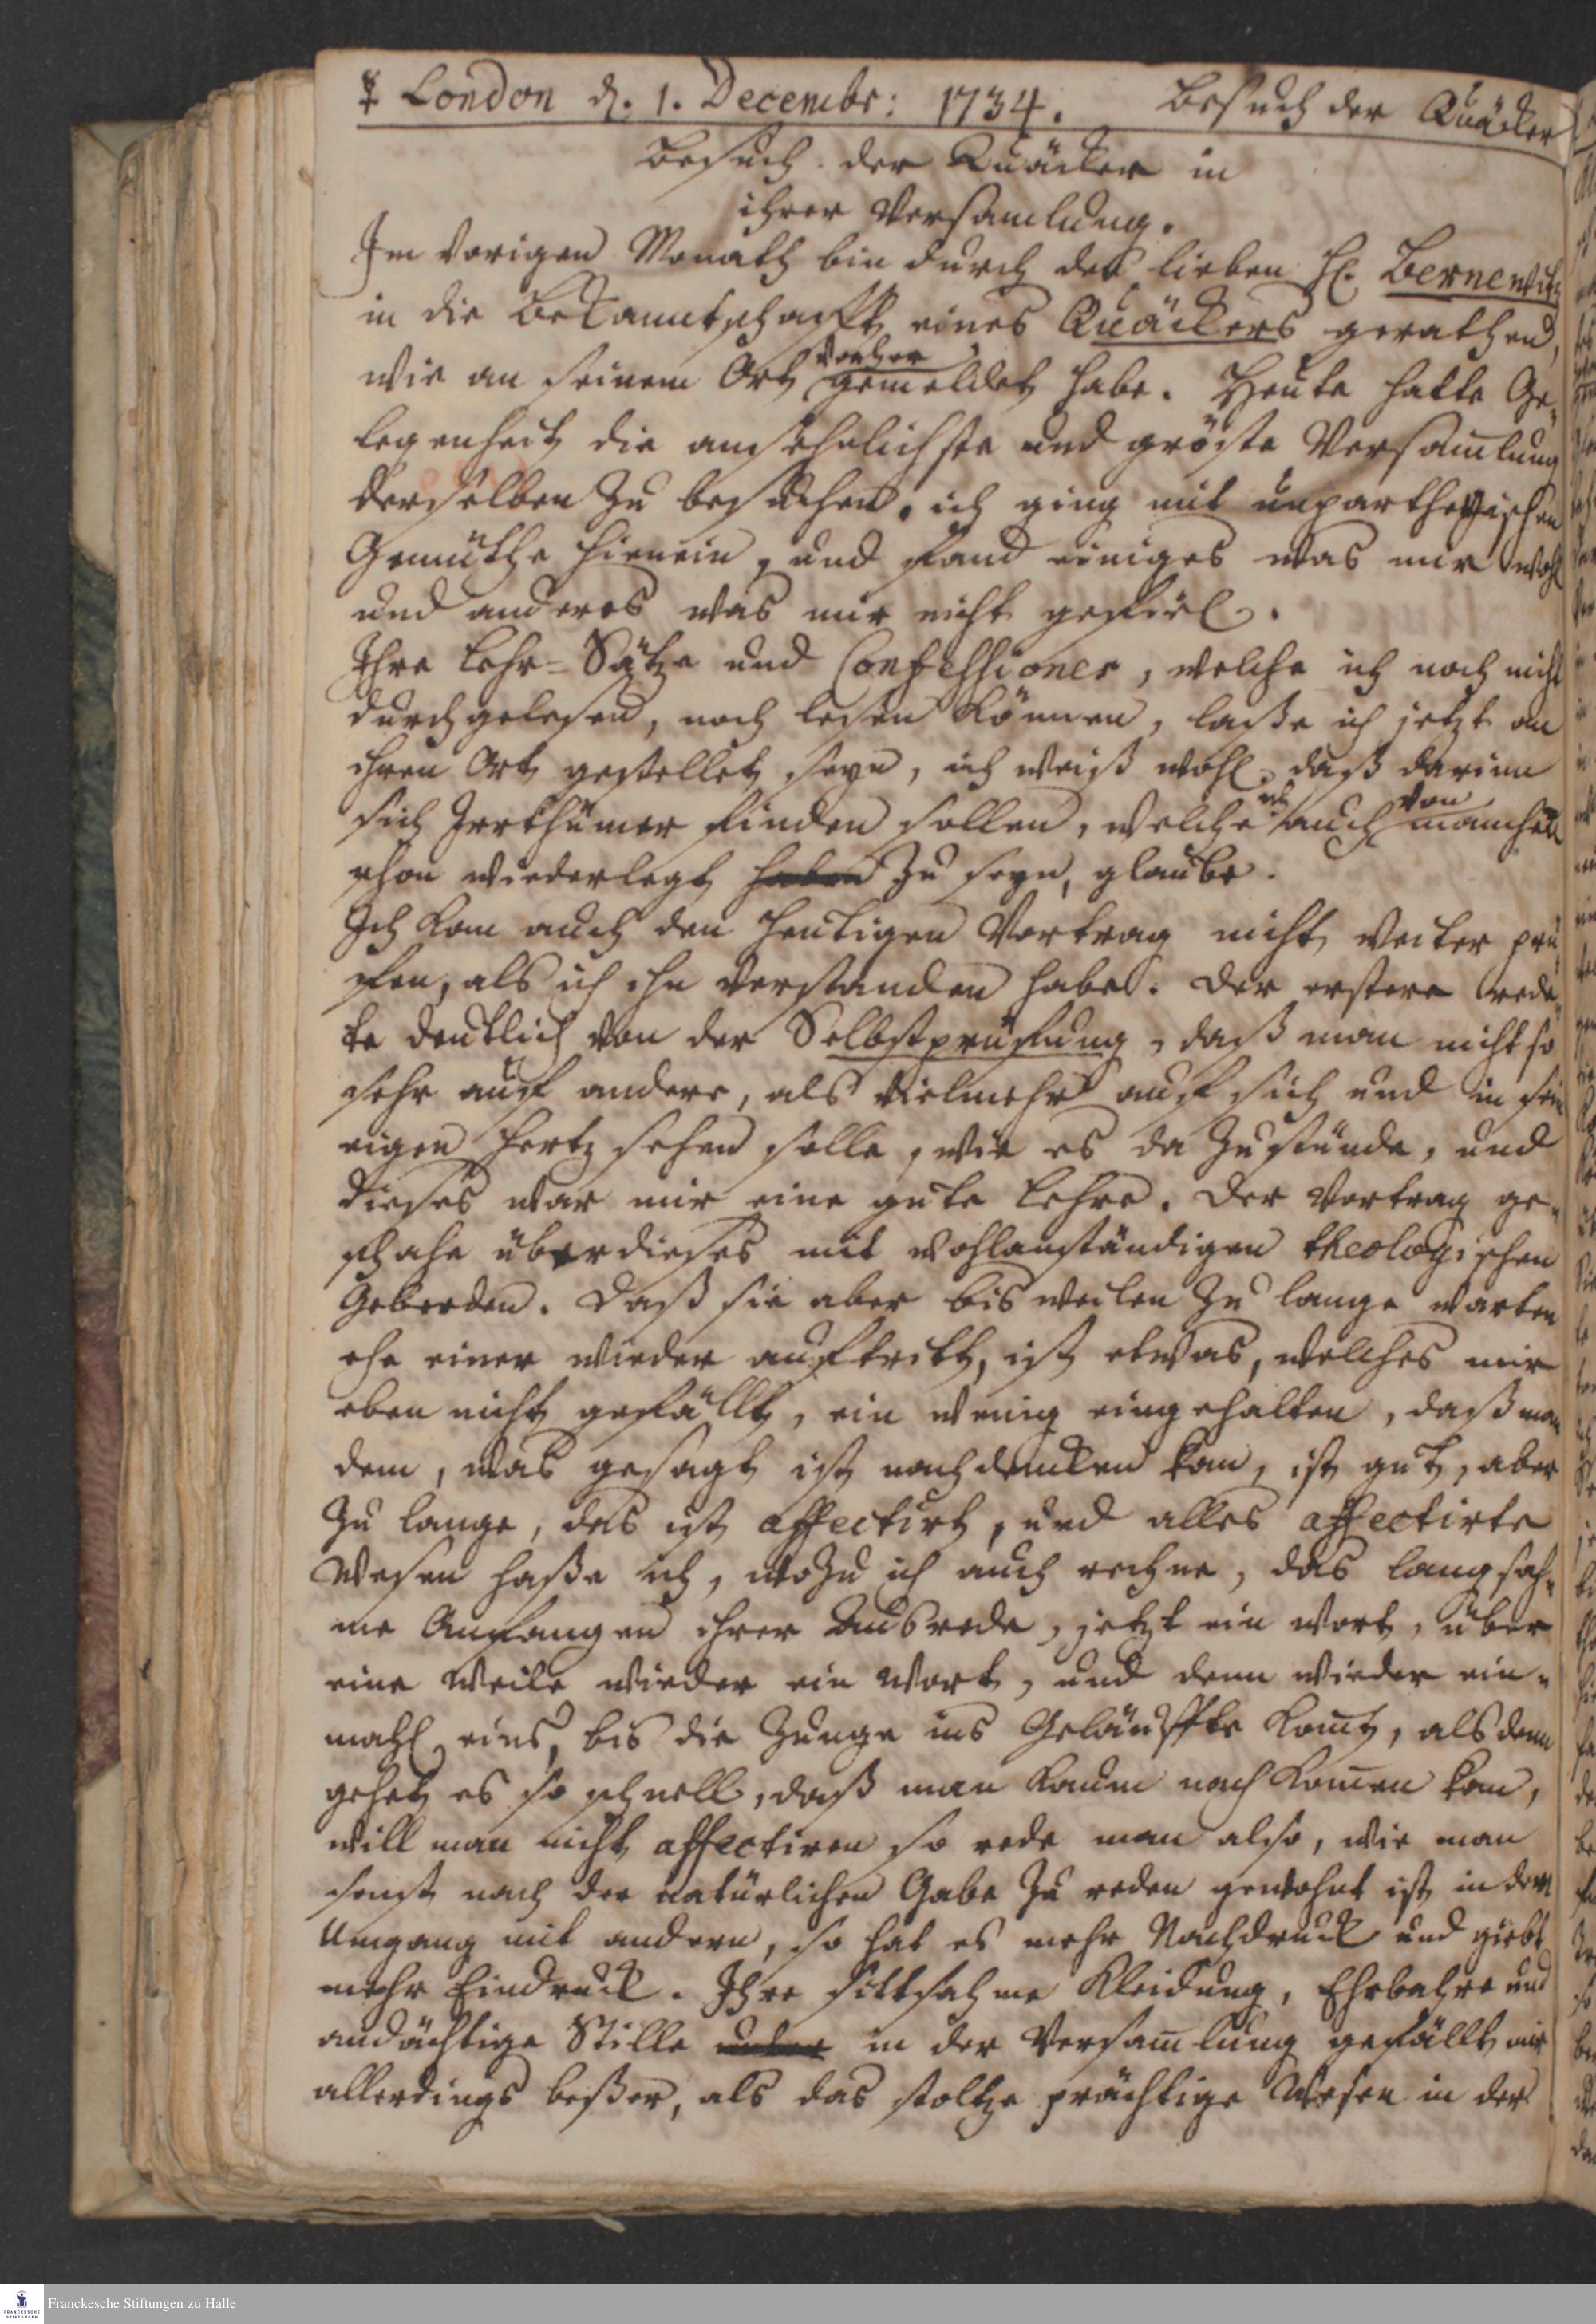 ☿ London d. 1. Decembr: 1734. Besuch der Quäcker
Besuch der Quäcker in
ihrer Versamlung.
Im vorigen Monath bin durch den lieben H. Bernewitz
in die Bekanntschafft eines Quäckers gerathen,
wie an seinem Ort vorher gemeldet habe. Heute hatte Ge-
legenheit die ansehnlichste und gröste Versam̄lung
derselben zu besuchen. ich ging mit unpartheyischen
Gemüthe hienein, und fand einiges was mir wohl
und anderes was mir nicht gefiel.
Ihre Lehr-Sätze und Confessiones, welche ich noch nicht
durchgelesen, noch lesen können, laße ich jetzt an
ihren Ort gestellet seyn, ich weiß wohl, daß darinn
sich Irrthümer finden sollen, welche ich auch von manchen
schon wiederlegt haben zu seyn, glaube.
Ich kan auch den heutigen Vortrag nicht weiter prü-
fen, als ich ihn verstanden habe. Der erstere rede-
te deutlich von der Selbstprüfung, daß man nicht so
sehr auf andere, als vielmehr auf sich und in sein
eigen Hertz sehen solle, wie es da zustünde, und
dieses war mir eine gute Lehre. Der Vortrag ge-
schahe überdieses mit wohlanständigen theologischen
Geberden. Daß sie aber bisweilen zu lange warten
ehe einer wieder auftritt, ist etwas, welches mir
eben nicht gefällt, ein wenig eingehalten, daß man
dem, was gesagt ist nachdencken kan, ist gut, aber
zu lange, das ist affectirt, und alles affectirte
Wesen haße ich, wozu ich auch rechne, das langsah-
me Anfangen ihrer Ausrede, jetzt ein Wort, über
eine Weile wieder ein Wort, und denn wieder ein-
mahl eins, bis die Zunge ins Geläuffte kom̄t, als denn
gehet es so schnell, daß man kaum nach kom̄en kan,
will man nicht affectiren so rede man also, wie man
sonst nach der natürlichen Gabe zu reden gewohnt ist in dem
Umgang mit andern, so hat es mehr Nachdruck und giebt
mehr Eindruck. Ihre sittsahme Kleidung, Ehrbahre und
andächtige Stille in der Versam̄lung gefällt mir
allerdings beßer, als das stoltze prächtige Wesen in der
Franckesche Stiftungen zu Halle